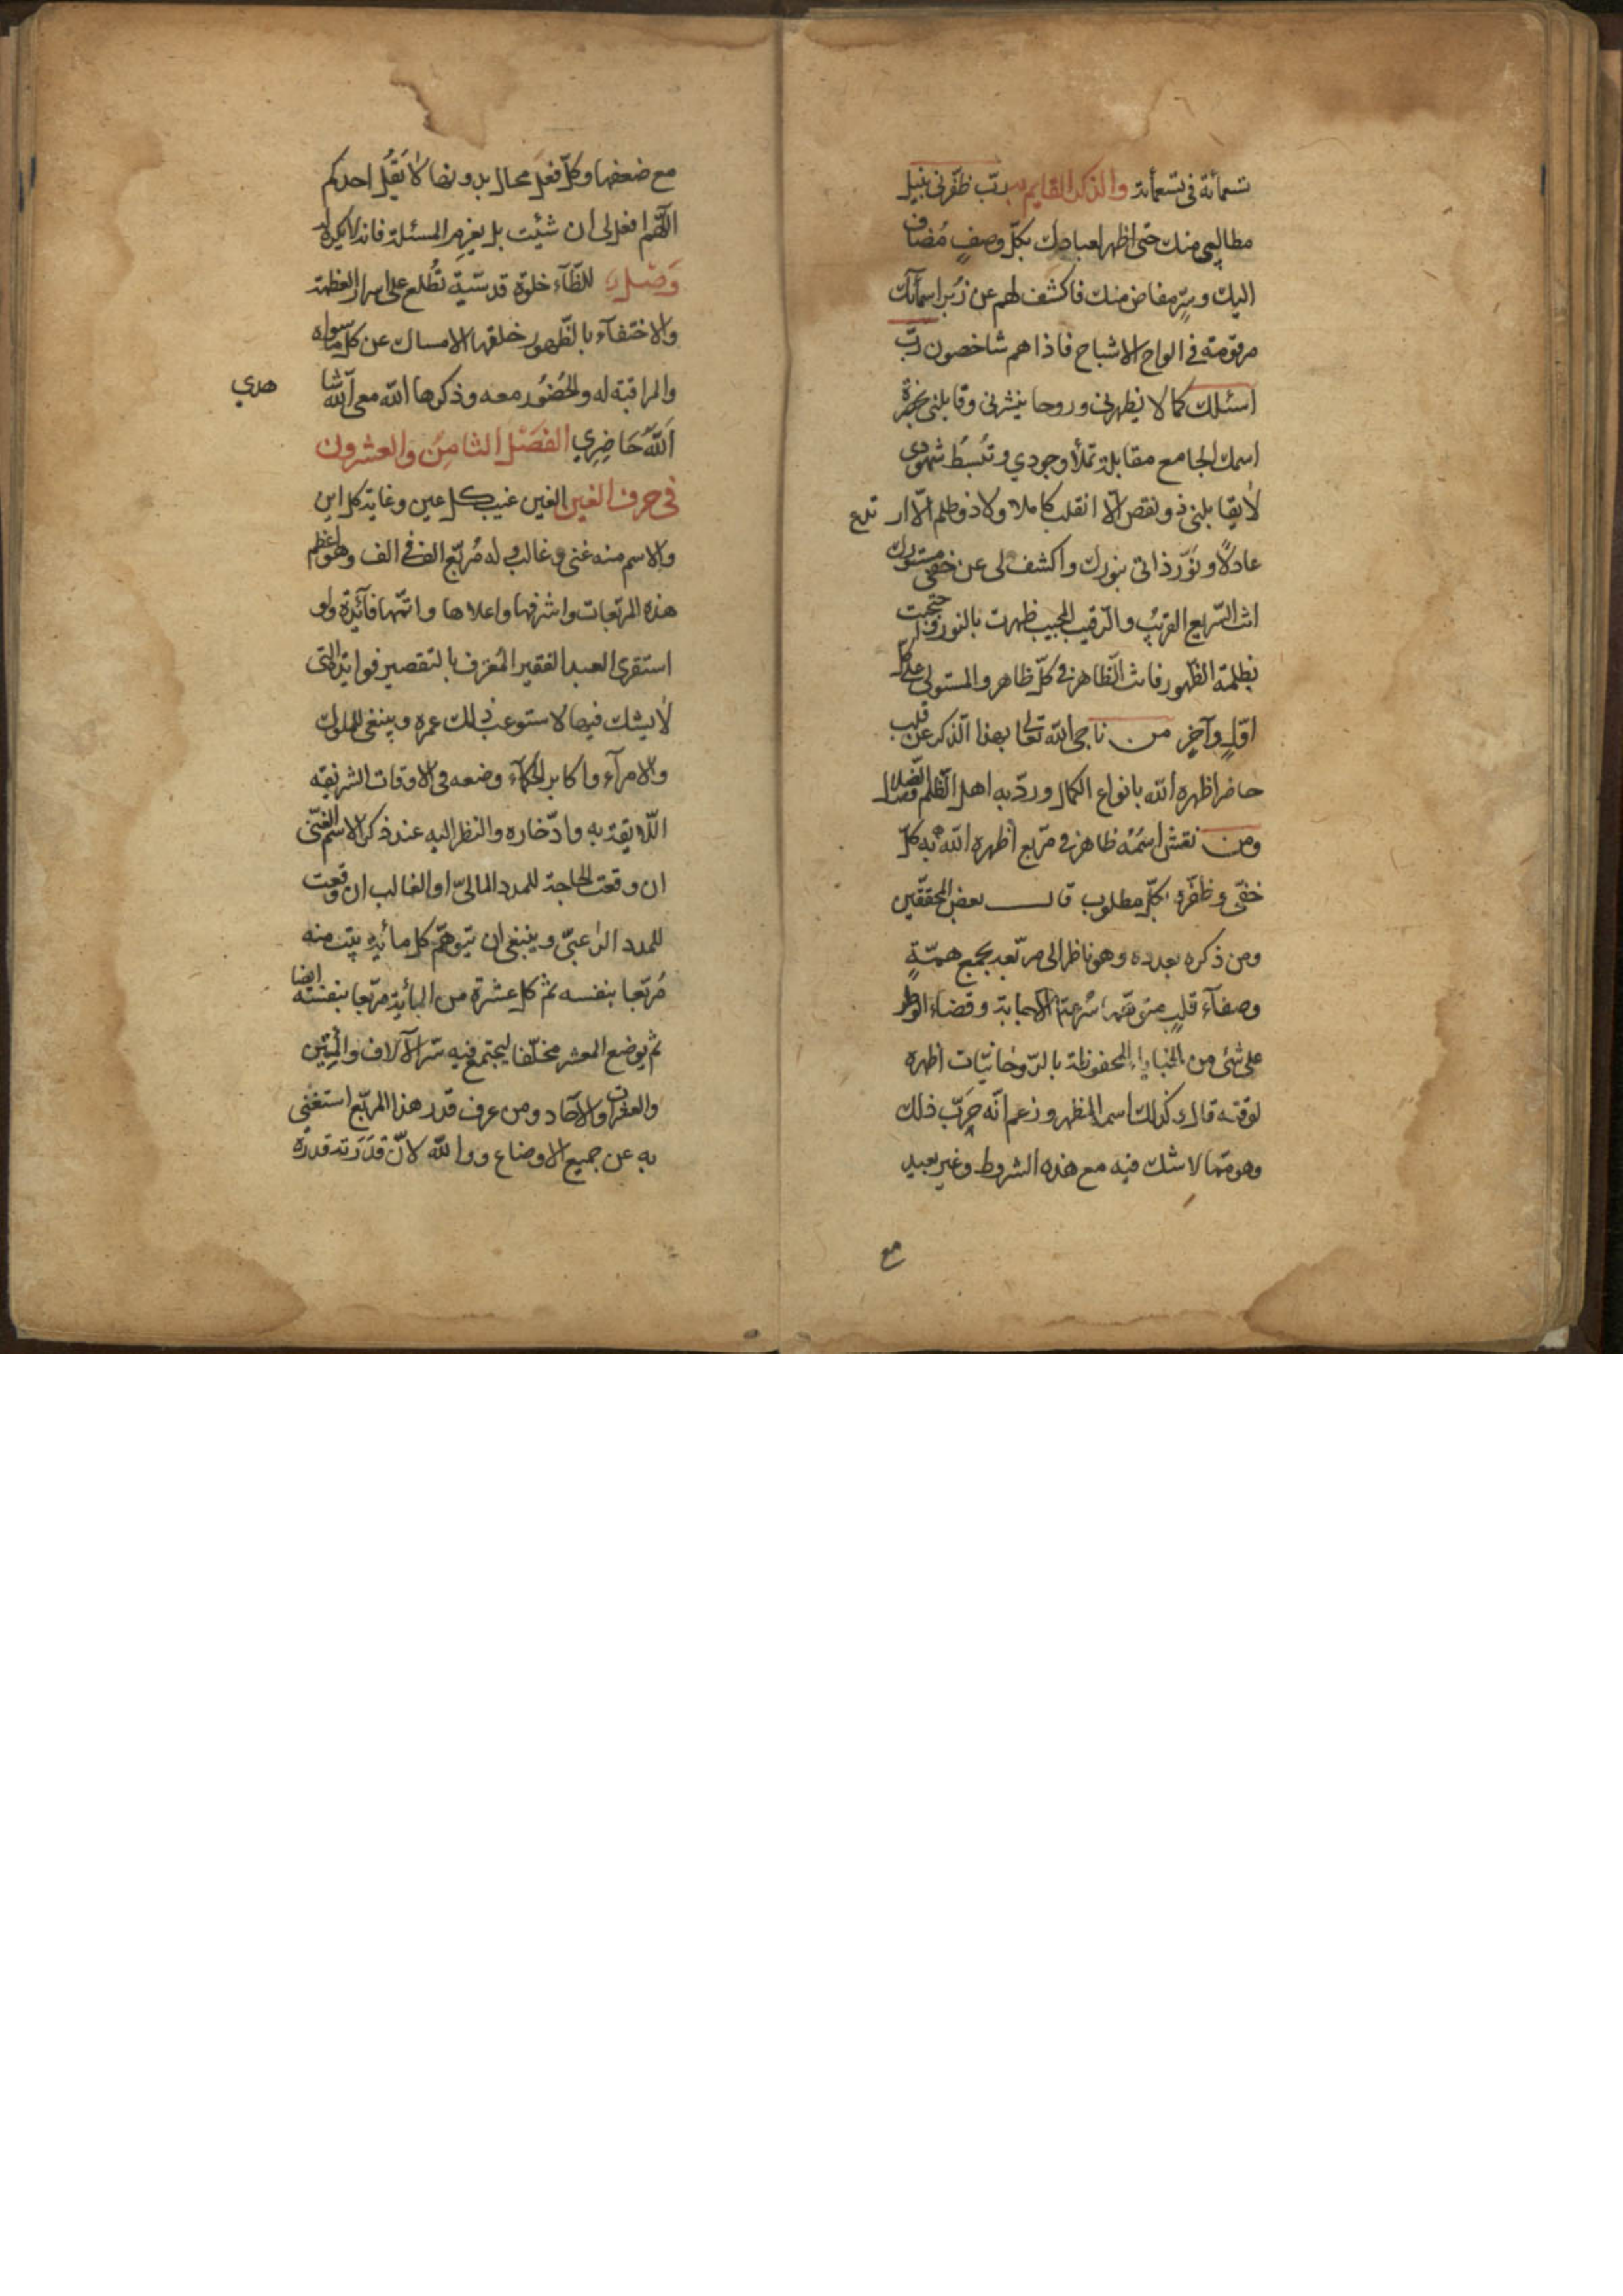 تسعمائة فى تسعمائة والذكر القايم به رب ظفّرنى بنيل
مطالبى منك حتى اظهر لعبادك بكلّ وصفٍ مُضاف
اليك وسرٍّ مفاض منك فاكشف لهم عن زُبر اسمآئك
مرقومة فى الواح الاشباح فاذا هم شاخصون ربّ
اسئلك كمالا يظهرنى وروحا ينشرنى وقابلنى بحضرة
اسمك الجامع مقابلة تملأ وجودي وتبسُط شهودى
لا يقابلنى ذو نقص الّا انقلب كاملا ولا ذو ظلم الّا ارتدع
عادلاً ونوّر ذاتى بنورك واكشف لى عن خفى مستورك
انت السّريع القريبُ والرّقيب المجيب ظهرت بالنور واحتجبت
بظلمة الظهور فانت الظّاهر فى كلّ ظاهر والمستولى على كلّ
اوّلٍ وآخرٍ من ناجى الله تعالى بهذا الذّكر عن قلب
حاضر اظهره الله بانواع الكمال وردّ به اهل الظّلم والضلال
ومن نقش اسمَهُ ظاهر فى مربّع أظهره الله به كلّ
خفّى وظفّره بكلّ مطلوب قال بعض المحققّين
ومن ذكره بعدده وهو ناظر الى مربّعه بجمع همّةٍ
وصفآء قلبٍ متوهّما سُرعة الاجابة وقضاء الوطر
على شئ من الخبايا المحفوظة بالرّوحانيّات اظهره
لوقته قال وكذلك اسمه المظهر وزعم انّه جرّب ذلك
وهو ممّا لا شك فيه مع هذه الشروط وغير بعيد
مع
مع ضعفها وكلّ فعل محال بدونها لا يَقُل احدكم
اللّهم افعل لى ان شئيت بل يعزم المسئلة فانه لا مكره له
وَصْل للظّآء خلوة قدسّية تُطلع على اسرار العظمة
والاختفآء بالظّهور خلقها الامساك عن كلّ ما سواه
والمراقبة له والحُضُور معه وذكرها الله معى الله شاهدي
اَللهُ حَاضِرِي الفَصْل الثامِنُ والعشرون
فى حرف الغين الغين غيب كل عين وغاية كل اين
والاسم منه غنى وغالب وله مُربّع الف فى الف وهو اعظم
هذه المربّعات واشرفها واعلاها واتمّها فآئدة ولو
استقرى العبد الفقير المُعترف بالتقصير فوايده التى
لا يشك فيها لاستوعب ذلك عمره وينبغى للملوك
والامرآء واكابر الحكمآء وضعه فى الاوقات الشريفه
اللّايقة به وادّخاره والنظر اليه عند ذكر الاسم الغنّى
ان وقعت الحاجة للمدد المالىّ او الغالب ان وقعت
للمدد الرعبىّ وينبغى ان يتوهّم كل مأية بيت منه
مُربّعا بنفسه ثم كل عشرة من المأية مربّعا بنفسه ايضا
ثم يوضع المعشر مخلّفا ليجتمع فيه سرّ الآلاف والمِئين
والعشرات والآحاد ومن عرف قدر هذا المربّع استغنى
به عن جميع الاوضاع ووالله لانّ قدرته قدرة